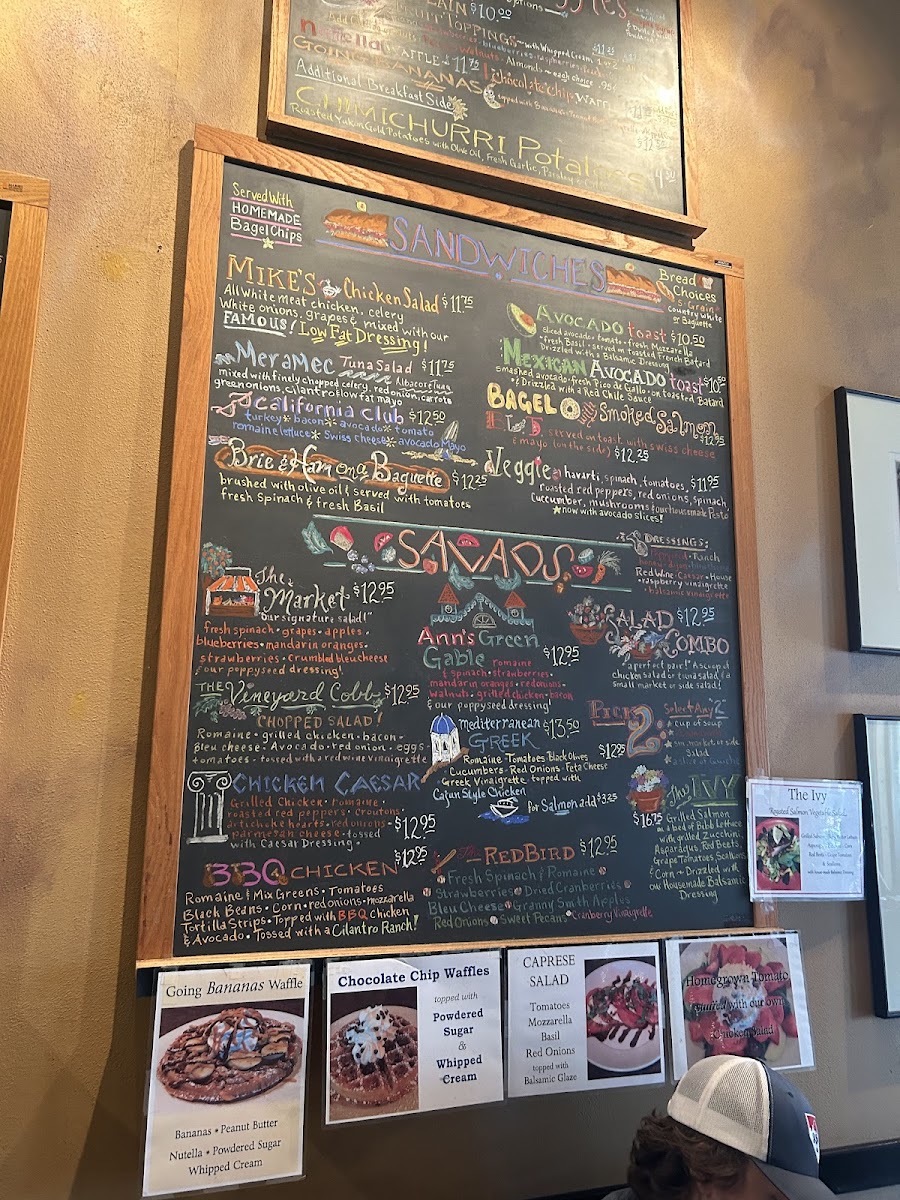 LAIN $10.00
TOPPINGS~with Whipped Cream
Walnuts. Almonds~each choice .95¢
WAFFLE $11.75
GOING BANANAS
chocolate chip Waffle
Additional Breakfast Side
CHIMICHURRI Potatoes
Roasted Yukon Gold Potatoes with Olive Oil, Fresh Garlic, Parsley
4.50
Served With
HOMEMADE
Bagel Chips
SANDWICHES
Bread
Choices
5 Grain
country white
or Baguette
MIKE'S Chicken Salad $11.75
All white meat chicken, celery
White onions, grapes & mixed with our
FAMOUS! Low Fat Dressing!
MERAMEC Tuna Salad $11.75
Albacore Tuna
mixed with finely chopped celery, red onion, carrots
green onions, cilantro & low fat mayo
California Club $12.50
turkey * bacon * avocado * tomato
romaine lettuce * Swiss cheese * avocado Mayo
Brie & Ham on a Baguette $12.25
brushed with olive oil & served with tomatoes
fresh Spinach & fresh Basil
AVOCADO toast $10.50
sliced avocado · tomato · fresh Mozzarella
· fresh Basil · served on toasted French Batard
Drizzled with a Balsamic Dressing
MEXICAN AVOCADO toast $10.50
smashed avocado · fresh Pico de Gallo · on toasted Batard
& Drizzled with a Red Chile Sauce
BAGEL & Smoked Salmon
$12.95
served on toast with swiss cheese
& mayo (on the side) $12.25
Veggie havarti, spinach, tomatoes, $11.95
roasted red peppers, red onions, spinach,
cucumber, mushrooms & our Housemade Pesto
* now with avocado slices!
SALADS
DRESSINGS:
poppyseed · Ranch
Red Wine · Caesar · House
· raspberry vinaigrette
· balsamic vinaigrette
The Market $12.95
"our signature salad!"
fresh spinach · grapes · apples ·
blueberries · mandarin oranges ·
strawberries · crumbled bleu cheese
& our poppyseed dressing!
THE Vineyard Cobb $12.95
CHOPPED SALAD!
Romaine · grilled chicken · bacon ·
Bleu cheese · Avocado · red onion · eggs ·
tomatoes · tossed with a red wine vinaigrette
CHICKEN CAESAR
Grilled Chicken · romaine ·
roasted red peppers · croutons ·
artichoke hearts · red onions · $12.95
parmesan cheese · tossed
with Caesar Dressing ·
BBQ CHICKEN $12.95
Romaine & Mix Greens · Tomatoes
Black Beans · Corn · red onions · mozzarella
Tortilla Strips · Topped with BBQ Chicken
& Avocado · Tossed with a Cilantro Ranch!
Ann's Green
Gable $12.95
romaine
& spinach · strawberries ·
mandarin oranges · red onions ·
walnuts · grilled chicken · bacon
& our poppyseed dressing!
Mediterranean $13.50
GREEK
Romaine · Tomatoes · Black Olives
· Cucumbers · Red Onions · Feta Cheese
Greek Vinaigrette topped with
Cajun Style Chicken
for Salmon add $3.25
The REDBIRD $12.95
Fresh Spinach & Romaine
Strawberries Dried Cranberries
Bleu Cheese Granny Smith Apples
Red Onions Sweet Pecans Cranberry Vinaigrette
SALAD $12.95
COMBO
a perfect pair! A scoop of
chicken salad or tuna salad & a
small market or side salad!
PICK 2 $12.95
Select Any 2
* cup of soup
* sm. market or side
Salad
The IVY
$16.75
Grilled Salmon
on a bed of Bibb Lettuce
with grilled Zucchini,
Asparagus, Red Beets,
Grape Tomatoes, Scallions
& Corn ~ Drizzled with
our Housemade Balsamic
Dressing
The Ivy
Roasted Salmon Vegetable Salad
Going Bananas Waffle
Bananas • Peanut Butter
Nutella • Powdered Sugar
Whipped Cream
Chocolate Chip Waffles
topped with
Powdered
Sugar
&
Whipped
Cream
CAPRESE
SALAD
Tomatoes
Mozzarella
Basil
Red Onions
topped with
Balsamic Glaze
Homegrown Tomato
stuffed with our own
Chicken Salad